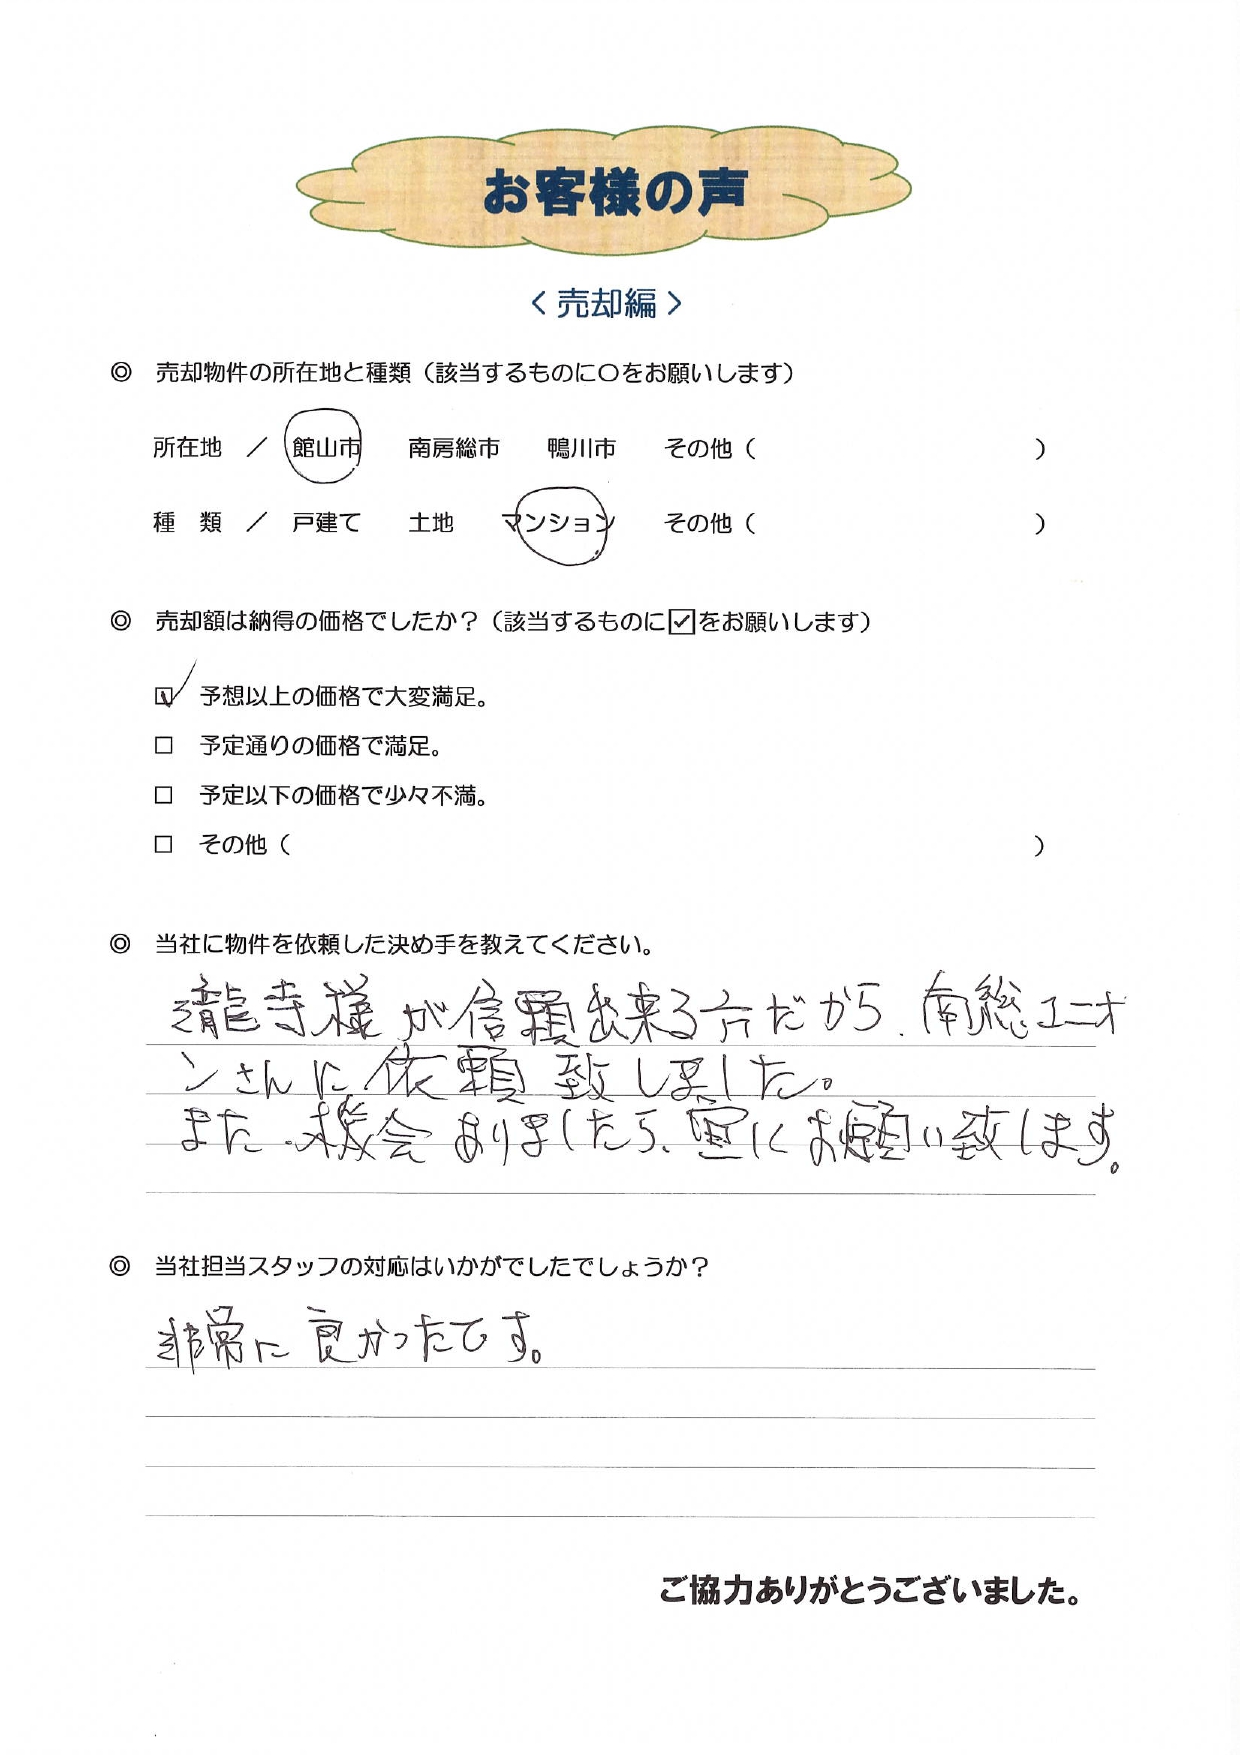 お客様の声
〈 売却編 〉
◎ 売却物件の所在地と種類（該当するものに○をお願いします）
所在地 ／ 館山市 南房総市 鴨川市 その他（ ）
種 類 ／ 戸建て 土地 マンション その他（ ）
◎ 売却額は納得の価格でしたか？（該当するものに☑をお願いします）
☑ 予想以上の価格で大変満足。
□ 予定通りの価格で満足。
□ 予定以下の価格で少々不満。
□ その他（ ）
◎ 当社に物件を依頼した決め手を教えてください。
瀧寺様が信頼出来る方だから、南総ユニオ
ンさんに依頼致しました。
また、機会ありましたら、宜しくお願い致します。
◎ 当社担当スタッフの対応はいかがでしたでしょうか？
非常に良かったです。
ご協力ありがとうございました。